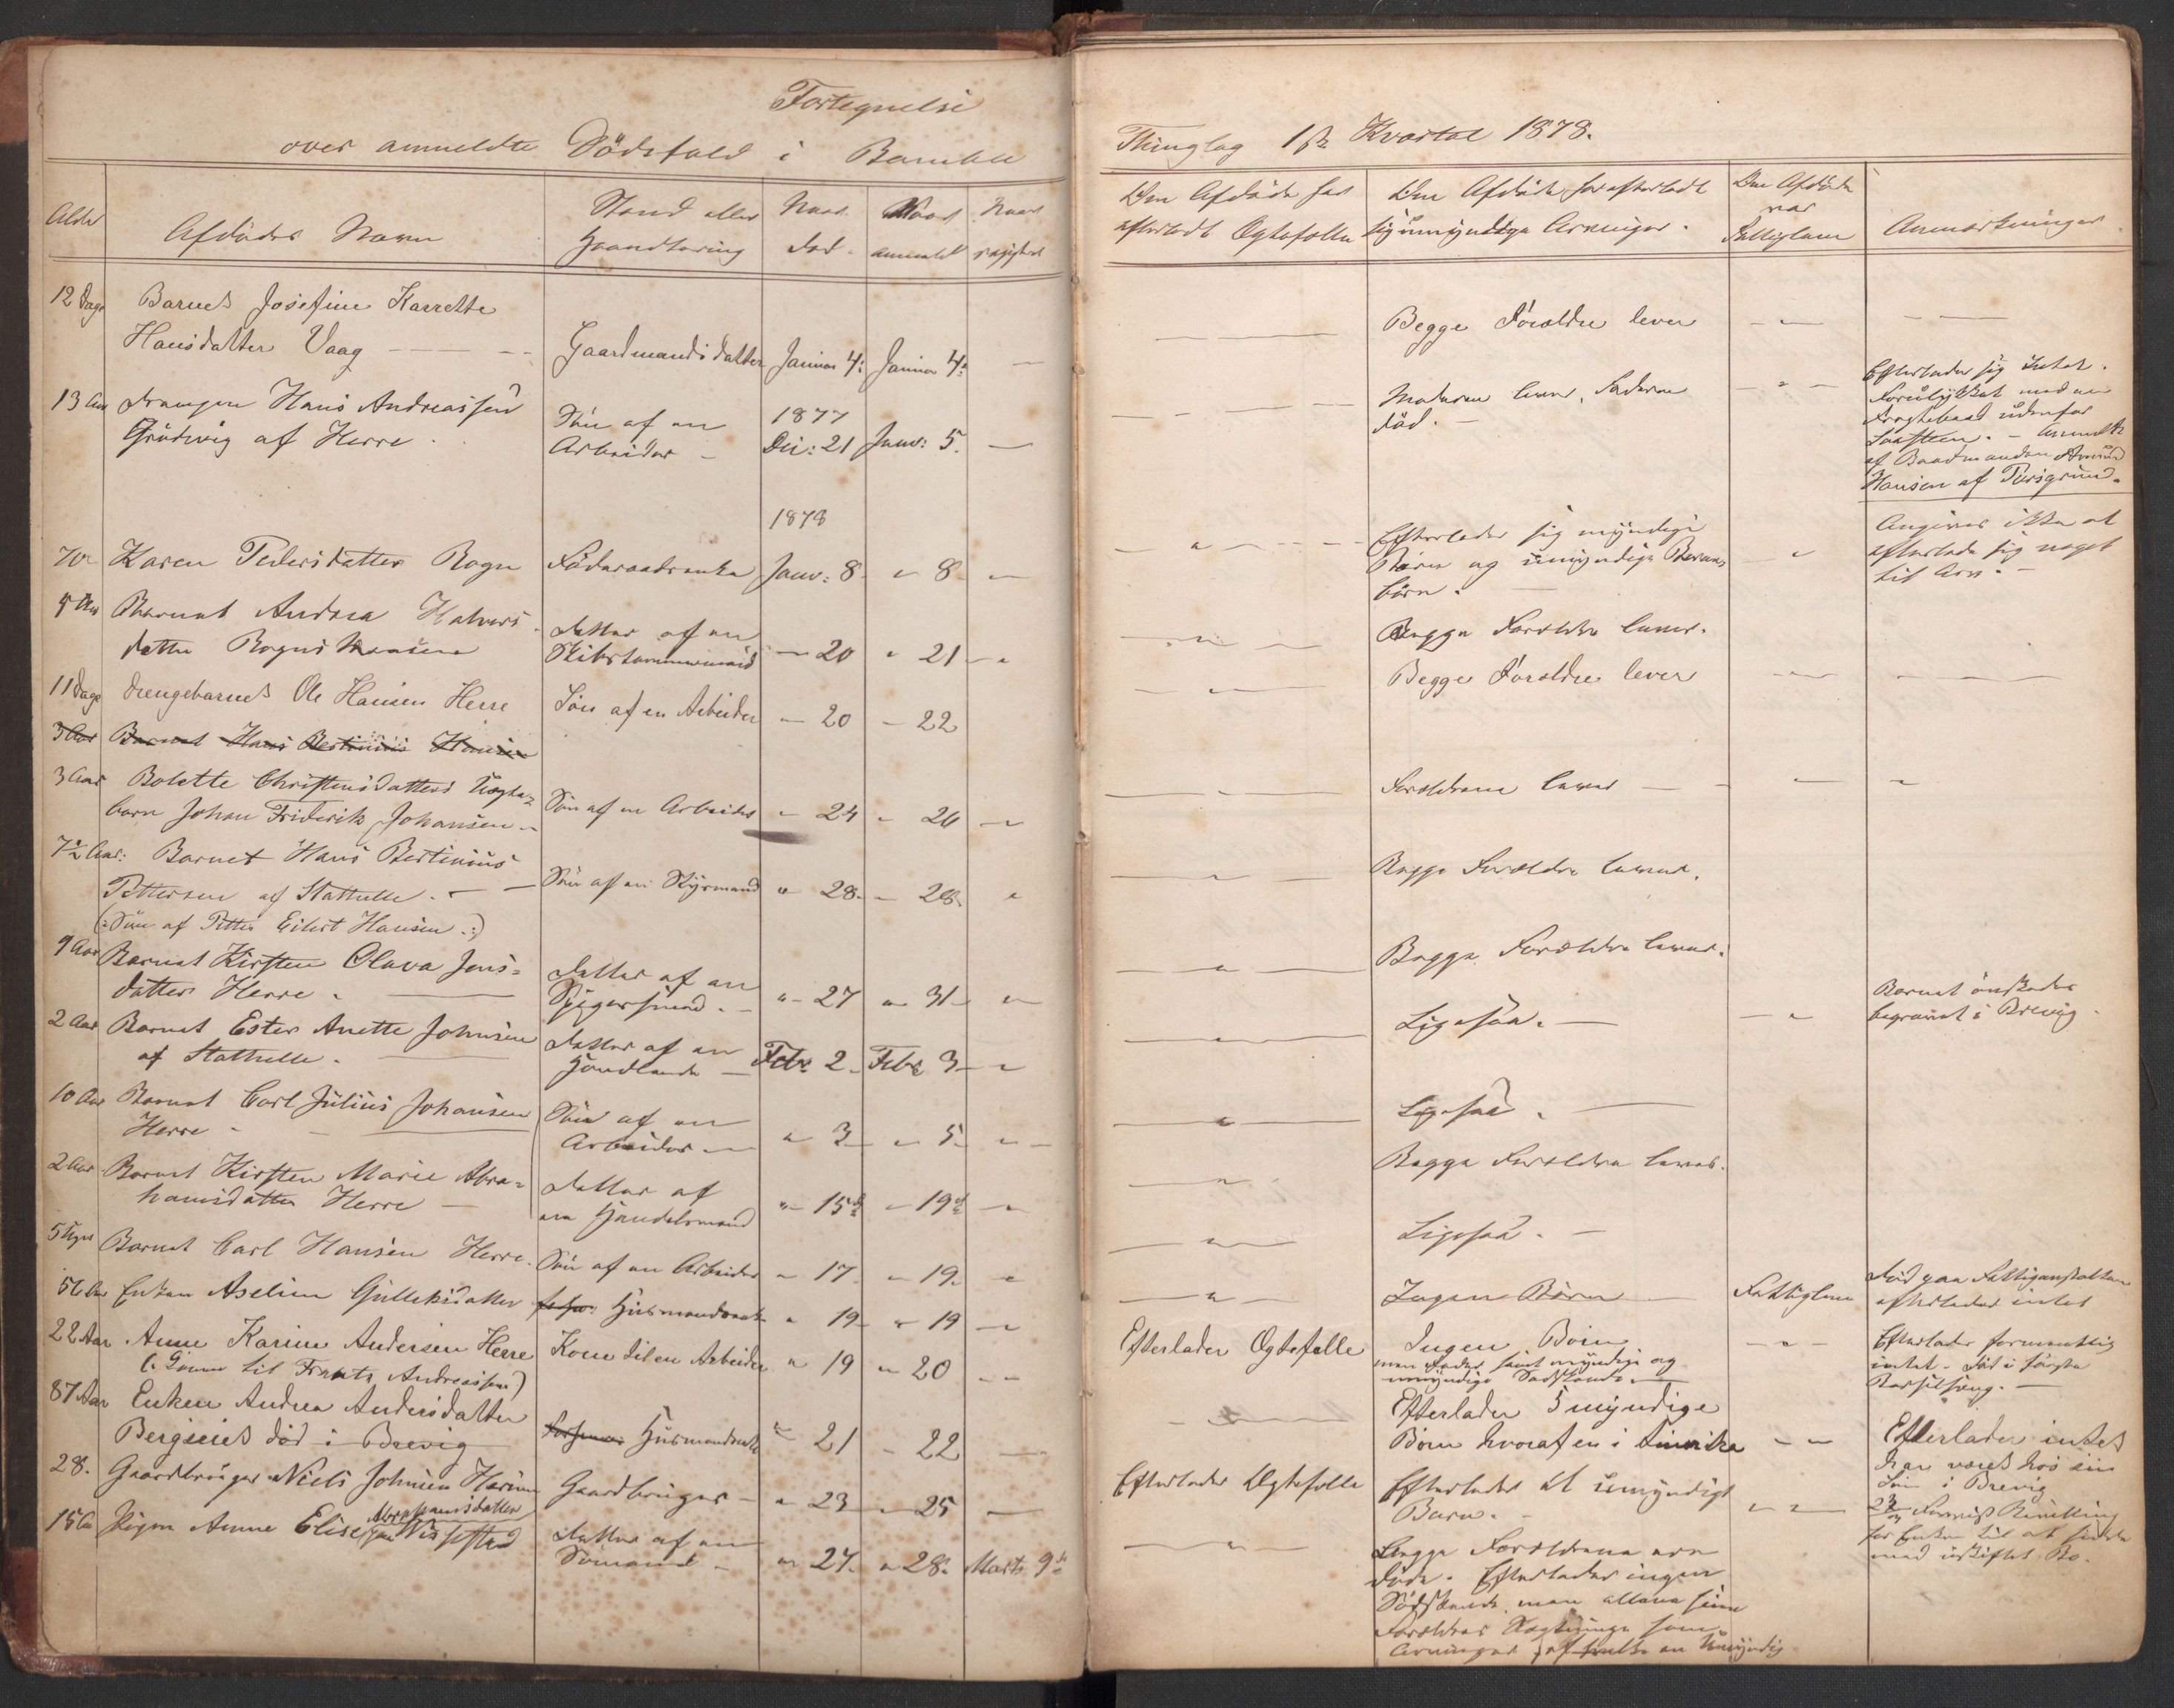 Fortegnelse
over anmeldte Dödsfald i Bamble
Thinglag 1ste Kvartal 1878.
Alder
Afdödes Navn
Stand eller
Haandtering
Naar
död.
Naar
anmeldt
Naar
registreret
Den Afdöde har
efterladt Ægtefælle
Den Afdöde har efterladt
sig umyndige Arvinger.
Den Afdöde
var
Fattiglem
Anmærkninger
12 Dage Barnet Josefine Karrette
Hansdatter Vaag Gaardmandsdatter Januar 4: Januar 4:
Begge Forældre lever
13 Aar Drengen Hans Andreassen
af Herre.
Sön af en
Arbeider
1877
Dec: 21 Januar: 5.
Moderen lever, Faderen
död.
Efterlader sig Intet.
Forulykket med en
udenfor
Anmeldt
af Baadmanden
Hansen af Porsgrund.
1878
70 Karen Pedersdatter Rogn Föderaadsenke Janv: 8. " 8.
Efterlader sig myndige
Börn og umyndige Barne
börn.
Angives ikke at
efterlade sig noget
til Arv.
Barnet Andrea Halvors
datter Rogns
Datter af en
Skibstømmermand 20 " 21
Begge Forældre lever.
11 Dage Drengebarnet Ole Hansen Herre Sön af en Arbeider 20 22
Begge Forældre lever
3 Aar Barnet Hans Bertinius Hansen
3 Aar Bolette Christensdatters Uægte
barn Johan Friderik Johansen Sön af en Arbeider " 24 " 26
Forældrene lever
7½ Aar: Barnet Hans Bertinius
Pettersen af Stathelle. Sön af en Styrmand " 28. 28.
(: Sön af Petter Eilert Hansen :)
Begge Forældre lever.
9 Aar Barnet Kirsten Olava Jens=
datter Herre.
Datter af en
" 27 " 31
Begge Forældre lever.
2 Aar Barnet Ester Anette Johnsen
af Stathelle.
Datter af en
Handlende Febr 2. Febr 3
Ligesaa.
Barnet önskedes
begravet i Brevig.
10 Aar Barnet Carl Julius Johansen
Herre
Sön af en
Arbeider " 3 " 5
Ligesaa.
2 Aar Barnet Kirsten Marie Abra=
hamsdatter Herre
Datter af
en Handelsmand " 15de " 19de
Begge Forældre lever.
5 Uger Barnet Carl Hansen Herre. Sön af en Arbeider " 17. " 19.
Ligesaa.
56 Aar Enken Aseline Gulleksdatter Husmandsenke " 19 " 19
Ingen Börn Fattiglem
Död paa Fattiganstalten
efterlader intet
22 Aar Anne Karine Andersen Herre Kone til en Arbeider " 19 " 20
(: Konne til Frants Andreassen)
Efterlader Ægtefelle Ingen Börn
men Fader samt myndige og
umyndige Sødskende.
Efterlader formentlig
intet. Död i
Barselseng.
87 Aar Enken Andrea Andersdatter
død i Brevig Husmandsenke " 21 " 22
Efterlader 5 myndige
Börn hvoraf en i Amerika
Efterlader intet
har været hos sin
Sön i Brevig
28. Gaardbruger Niels Johnsen Gaardbruger " 23 " 25
Efterlader Ægtefelle Efterlader et umyndigt
Barn.
Enken til at sidde
med uskiftet Bo.
15 Aar Pigen Anne Elise Abrahamsdatter
Datter af en
Sömand " 27. " 28. Marts 9de
Begge Forældrene ere
döde. Efterlader ingen
Södskende, men
Forældres som
Arvinger, af en Umyndig